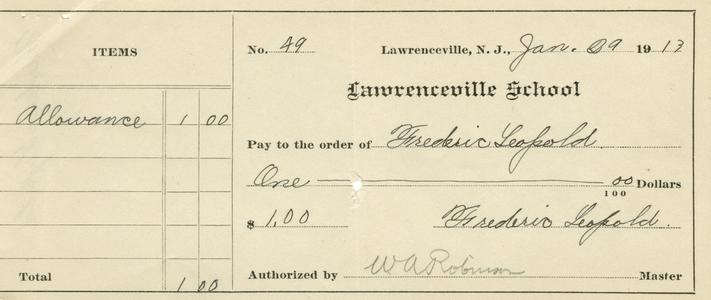 ITEMS
Allowance 1 00
Total 1 00
No. 49 Lawrenceville, N. J., Jan. 29 1913
Lawrenceville School
Pay to the order of Frederic Leopold
One 00/100 Dollars
$ 1.00 Frederic Leopold.
Authorized by W A Robinson Master